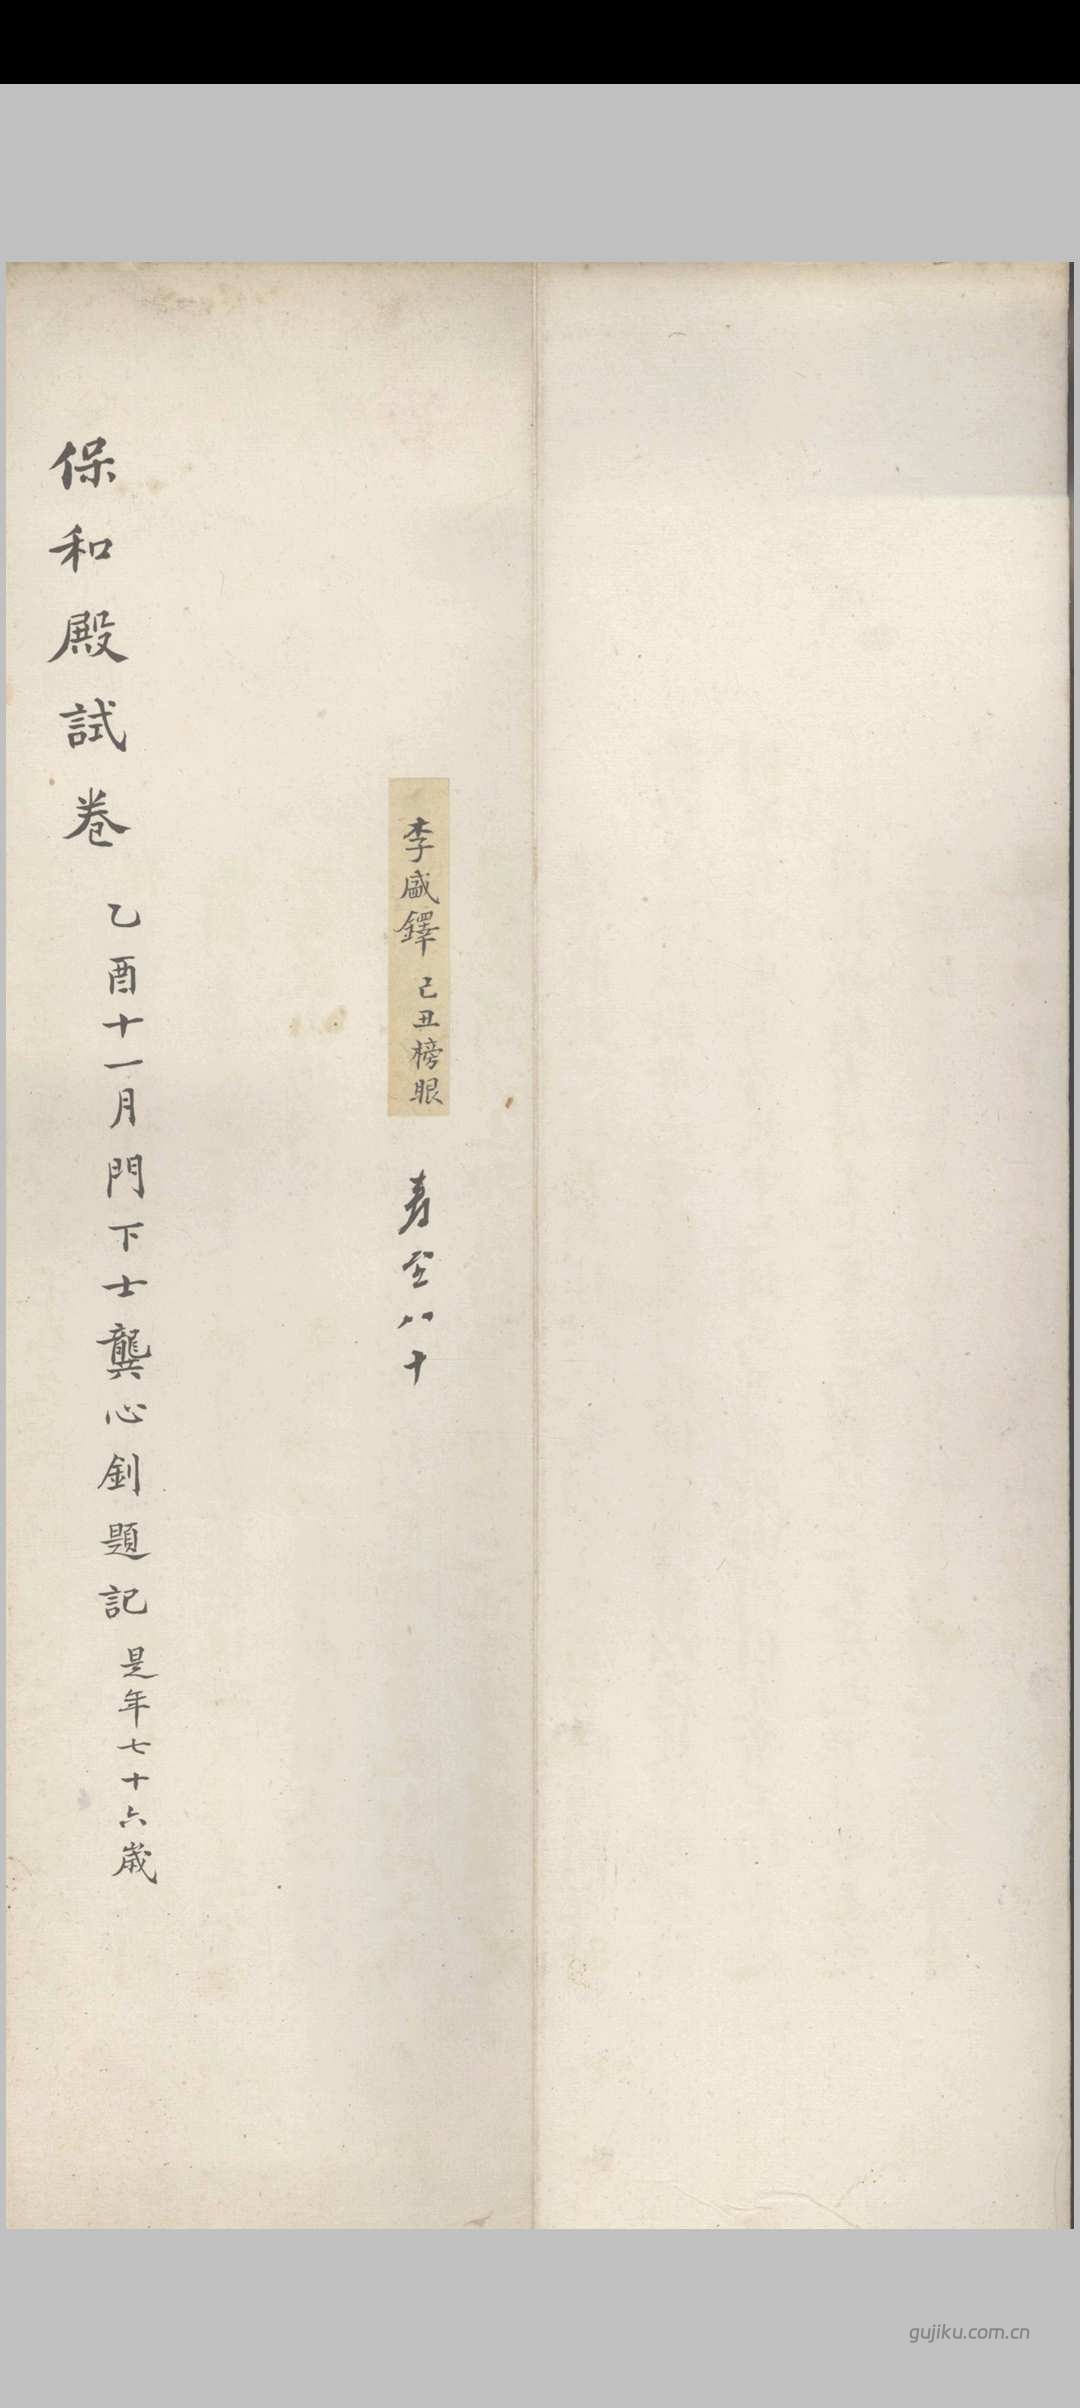 李盛鐸 己丑榜眼
壽至八十
保和殿試卷 乙酉十一月門下士龔心釗題記 是年七十六歲
gujiku.com.cn